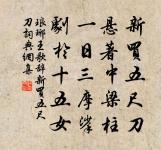 新買五尺刀
懸著中梁柱
一日三摩挲
劇於十五女
琅琊王歌辭新買五尺
刀詞典網集